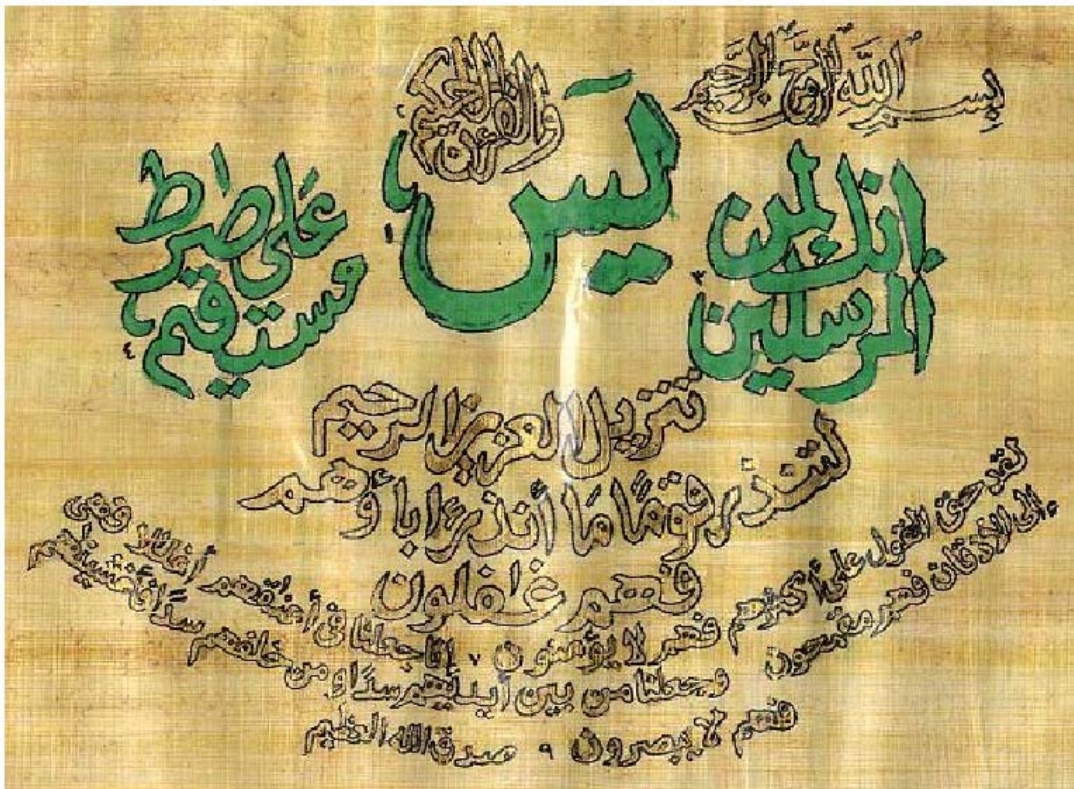 بسم الله الرحمن الرحيم
يس ١
والقرءان الحكيم
إنك لمن
المرسلين ٣
على صرط
مستقيم ٤
تنزيل العزيز الرحيم
لتنذر قوما ما أنذر ءاباؤهم
فهم غفلون
لقد حق القول على أكثرهم فهم لا يؤمنون ٧ إنا جعلنا في أعنقهم أغللا فهى
إلى الأذقان فهم مقمحون وجعلنا من بين أيديهم سدا ومن خلفهم سدا فأغشينهم
فهم لا يبصرون ٩ صدق الله العظيم